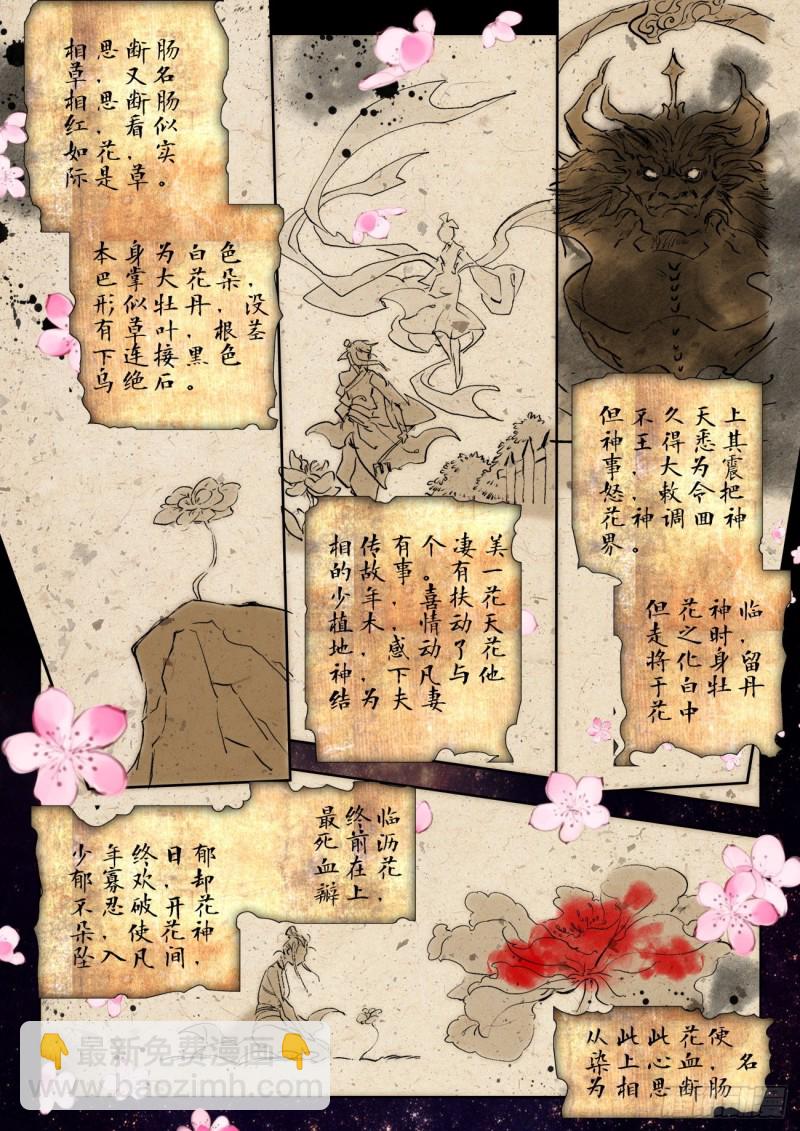 相思断肠
草，又名
相思断肠
红，看似
如花，实
际是草。
本身为白色
巴掌大花朵，
形似牡丹，没
有草叶，根茎
下连接黑色
乌绝石。
相传有个凄美
的故事。有一
少年，喜扶花
植木，情动天
地，感动了花
神下凡与他
结为夫妻
但不久天上
神王得悉其
事，大为震
怒，敕令把
花神调回神
界。
但花神临
走之时，
将化身留
于白牡丹
花中
少年终日郁
郁寡欢，却
不忍破开花
朵，使花神
坠入凡间，
最终临
死前沥
血在花
瓣上，
从此此花便
染上心血，名
为相思断肠
最新免费漫画
www.baozimh.com